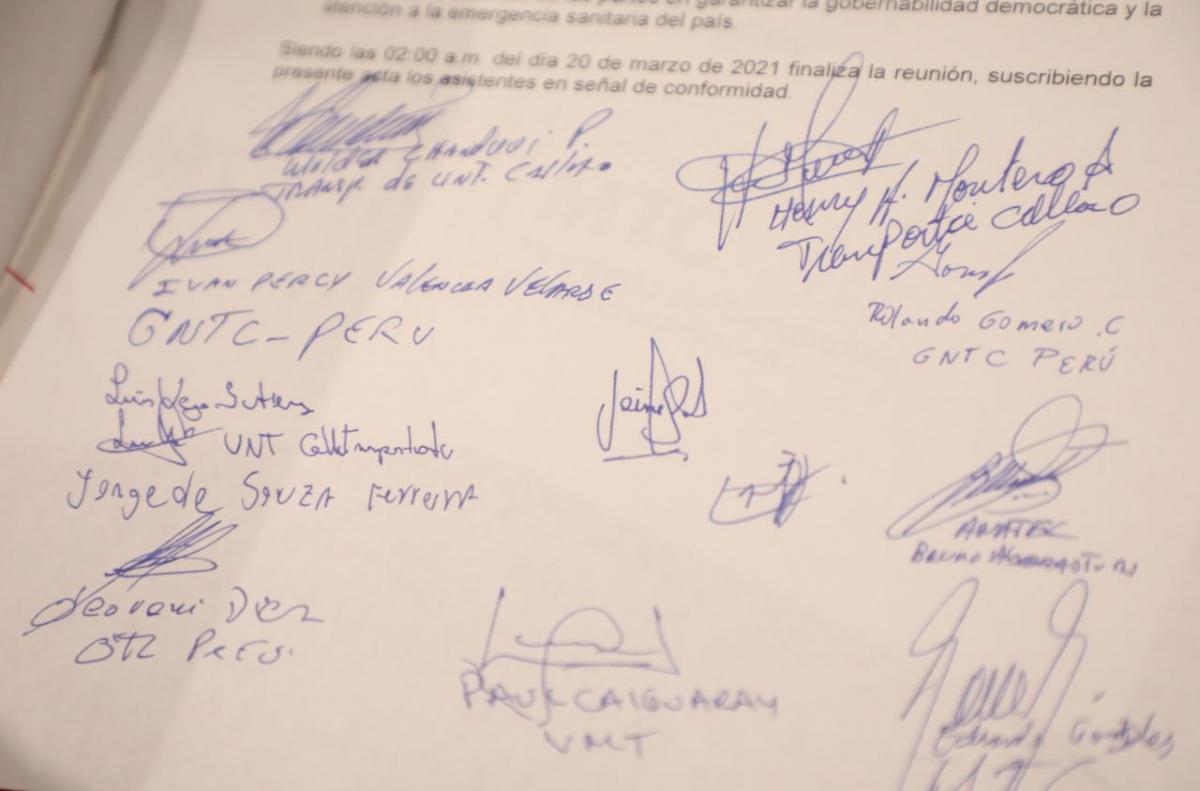 garantizar la gobernabilidad democrática y la
atención a la emergencia sanitaria del país.
Siendo las 02:00 a.m. del día 20 de marzo de 2021 finaliza la reunión, suscribiendo la
presente acta los asistentes en señal de conformidad.
WILDER CHANDUVI P.
TRANSP. DE UNT. CALLAO
Henry H. Montero A
Transportie Callao
IVAN PERCY VALENCIA VELARDE
GNTC-PERU
Rolando Gomero .C
GNTC PERÚ
Luis Vega
UNT
Jaime
Jorge de SOUZA FERREYRA
BRUNO
Geovani Diez
PAUL CAIGUARAY
VMT
Gonzales